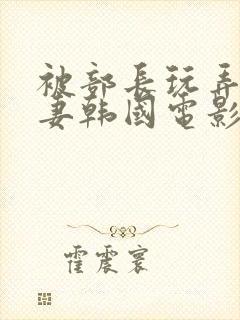 被部長玩弄
妻韩國電影
霍震寰